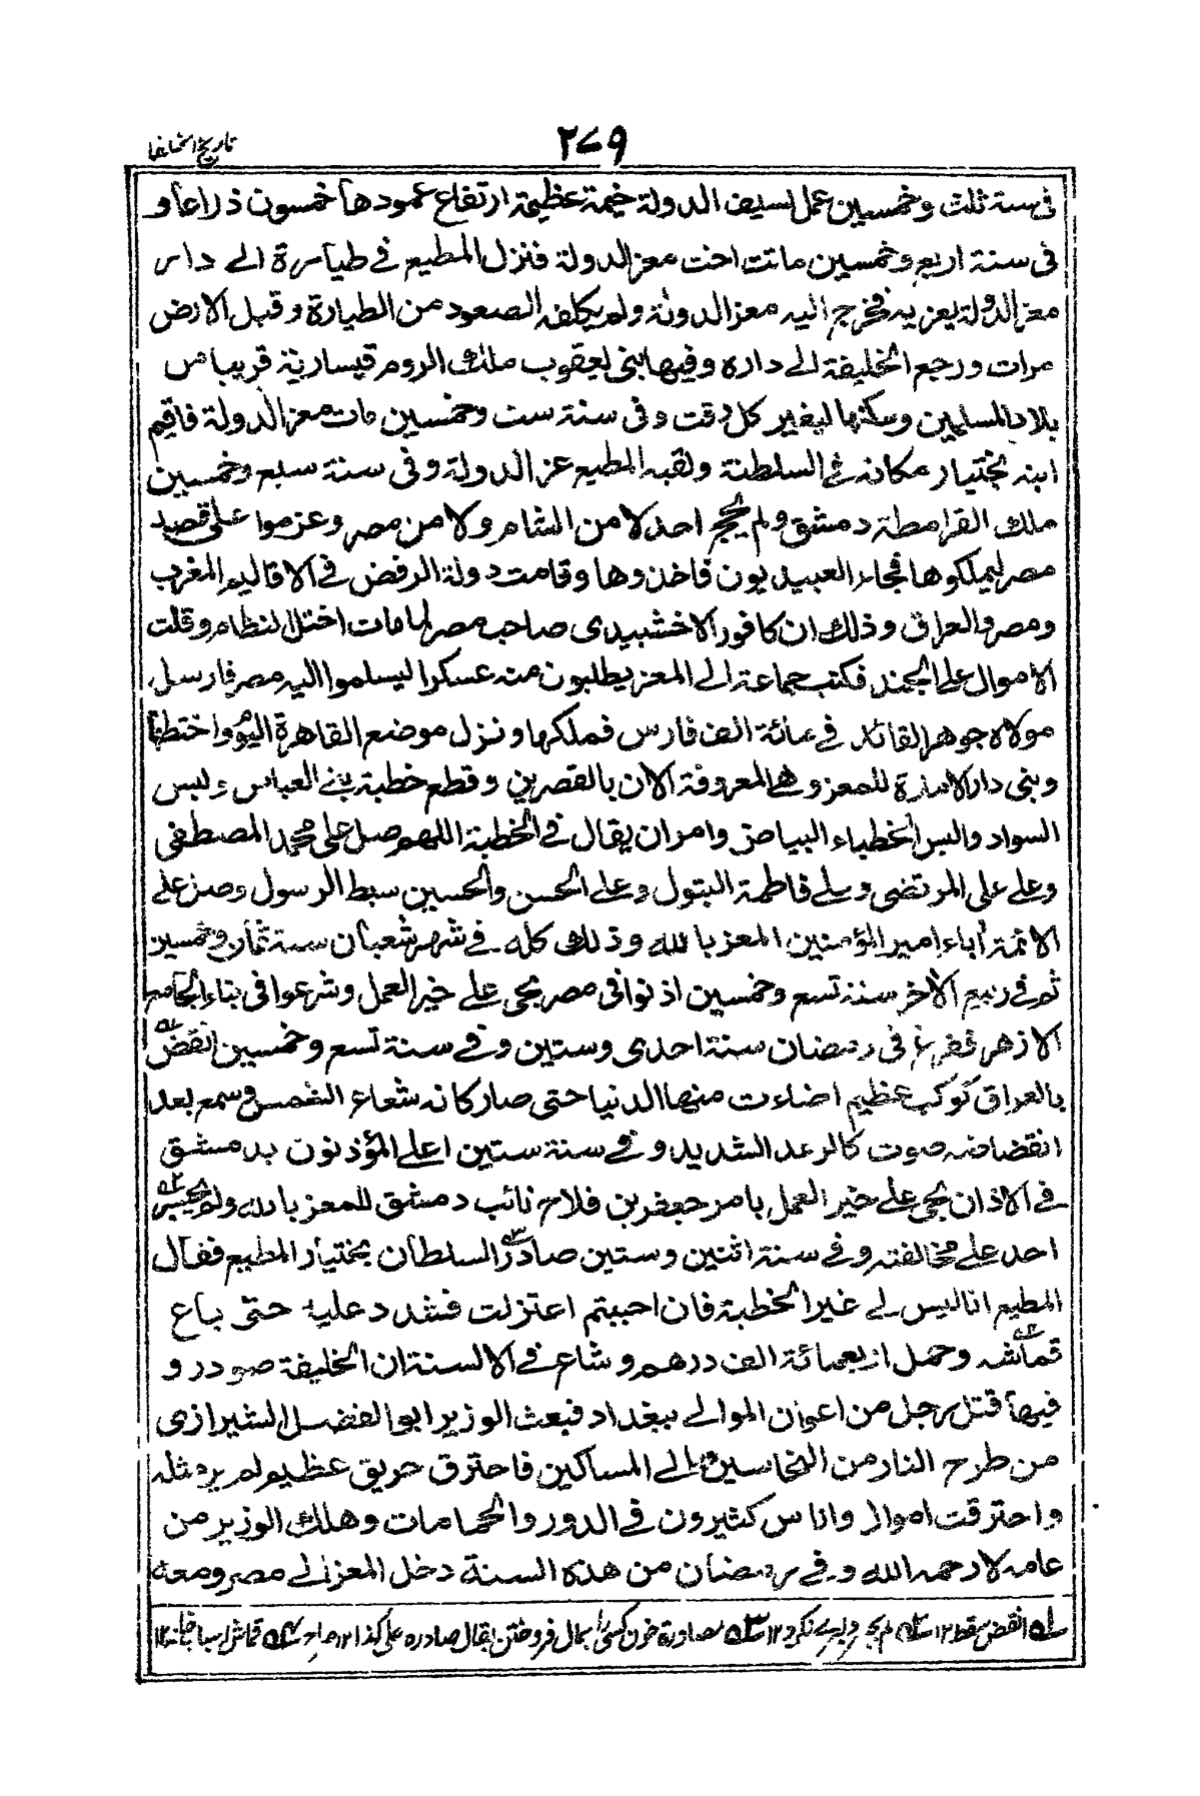 تاريخ الخلفا
٢٧٩
فى سنة ثلث وخمسين عمل لسيف الدولة خيمة عظيمة ارتفاع عمودها خمسون ذراعا و
فى سنة اربع وخمسين ماتت اخت معز الدولة فنزل المطيع فى طيارة الى دار
معز الدولة يعزيه فخرج اليه معز الدولة ولم يكلفه الصعود من الطيارة وقبل الارض
مرات ورجع الخليفة الى داره وفيها بنى يعقوب ملك الروم قيسارية قريبا من
بلاد المسلمين وسكنها ليغير كل وقت وفى سنة ست وخمسين مات معز الدولة فاقيم
ابنه بختيار مكانه فى السلطنة ولقبه المطيع عز الدولة وفى سنة سبع وخمسين
ملك القرامطة دمشق ولم يحج احد لا من الشام ولا من مصر وعزموا على قصد
مصر ليملكوها فجاء العبيديون فاخذوها وقامت دولة الرفض فى الاقاليم المغرب
ومصر والعراق وذلك ان كافور الاخشيدى صاحب مصر لما مات اختل النظام وقلت
الاموال على الجند فكتب جماعة الى المعز يطلبون منه عسكرا ليسلموا اليه مصر فارسل
مولاه جوهر القائد فى مائة الف فارس فملكها ونزل موضع القاهرة اليوم واختطها
وبنى دار الامارة للمعز وهى المعروفة الان بالقصرين وقطع خطبة بنى العباس ولبس
السواد والبس الخطباء البياض وامر ان يقال فى الخطبة اللهم صل على محمد المصطفى
وعلى على المرتضى وعلى فاطمة البتول وعلى الحسن والحسين سبط الرسول وصل على
الائمة اباء امير المؤمنين المعز بالله وذلك كله فى شهر شعبان سنة ثمان وخمسين
ثم فى ربيع الاخر سنة تسع وخمسين اذنوا فى مصر بحى على خير العمل وشرعوا فى بناء الجامع
الازهر ففرغ فى رمضان سنة احدى وستين وفى سنة تسع وخمسين انقض
بالعراق كوكب عظيم اضاءت منها الدنيا حتى صار كانه شعاع الشمس وسمع بعد
انقضاضه صوت كالرعد الشديد وفى سنة ستين اعلى المؤذنون بدمشق
فى الاذان بحى على خير العمل بامر جعفر بن فلاح نائب دمشق للمعز بالله ولم يجسر
احد على مخالفته وفى سنة اثنين وستين صادر السلطان بختيار المطيع فقال
المطيع انا ليس لى غير الخطبة فان احببتم اعتزلت فشدد عليه حتى باع
قماشه وحمل اربعمائة الف درهم وشاع فى الالسنة ان الخليفة صودر و
فيها قتل رجل من اعوان الوالى ببغداد فبعث الوزير ابو الفضل الشيرازى
من طرح النار من النحاسين الى السماكين فاحترق حريق عظيم لم ير مثله
واحترقت اموال واناس كثيرون فى الدور والحمامات وهلك الوزير من
عامه لا رحمه الله وفى رمضان من هذه السنة دخل المعز الى مصر ومعه
له انقض سقط ١٢ لم يجسر دليرى نكرد ١٢ مصادرة خون كسى را بمال فروختن يقال صادره على كذا ١٢ صراح قماش اسباب خانه ١٢